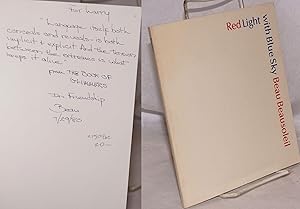 For Larry
"Language itself both
conceals and reveals - is both
implicit & explicit And the tension
between the extremes is what
keeps it alive"
from THE BOOK OF
GLIMMERS
In Friendship
Beau
7/29/80
Red Light with Blue Sky Beau Beausoleil